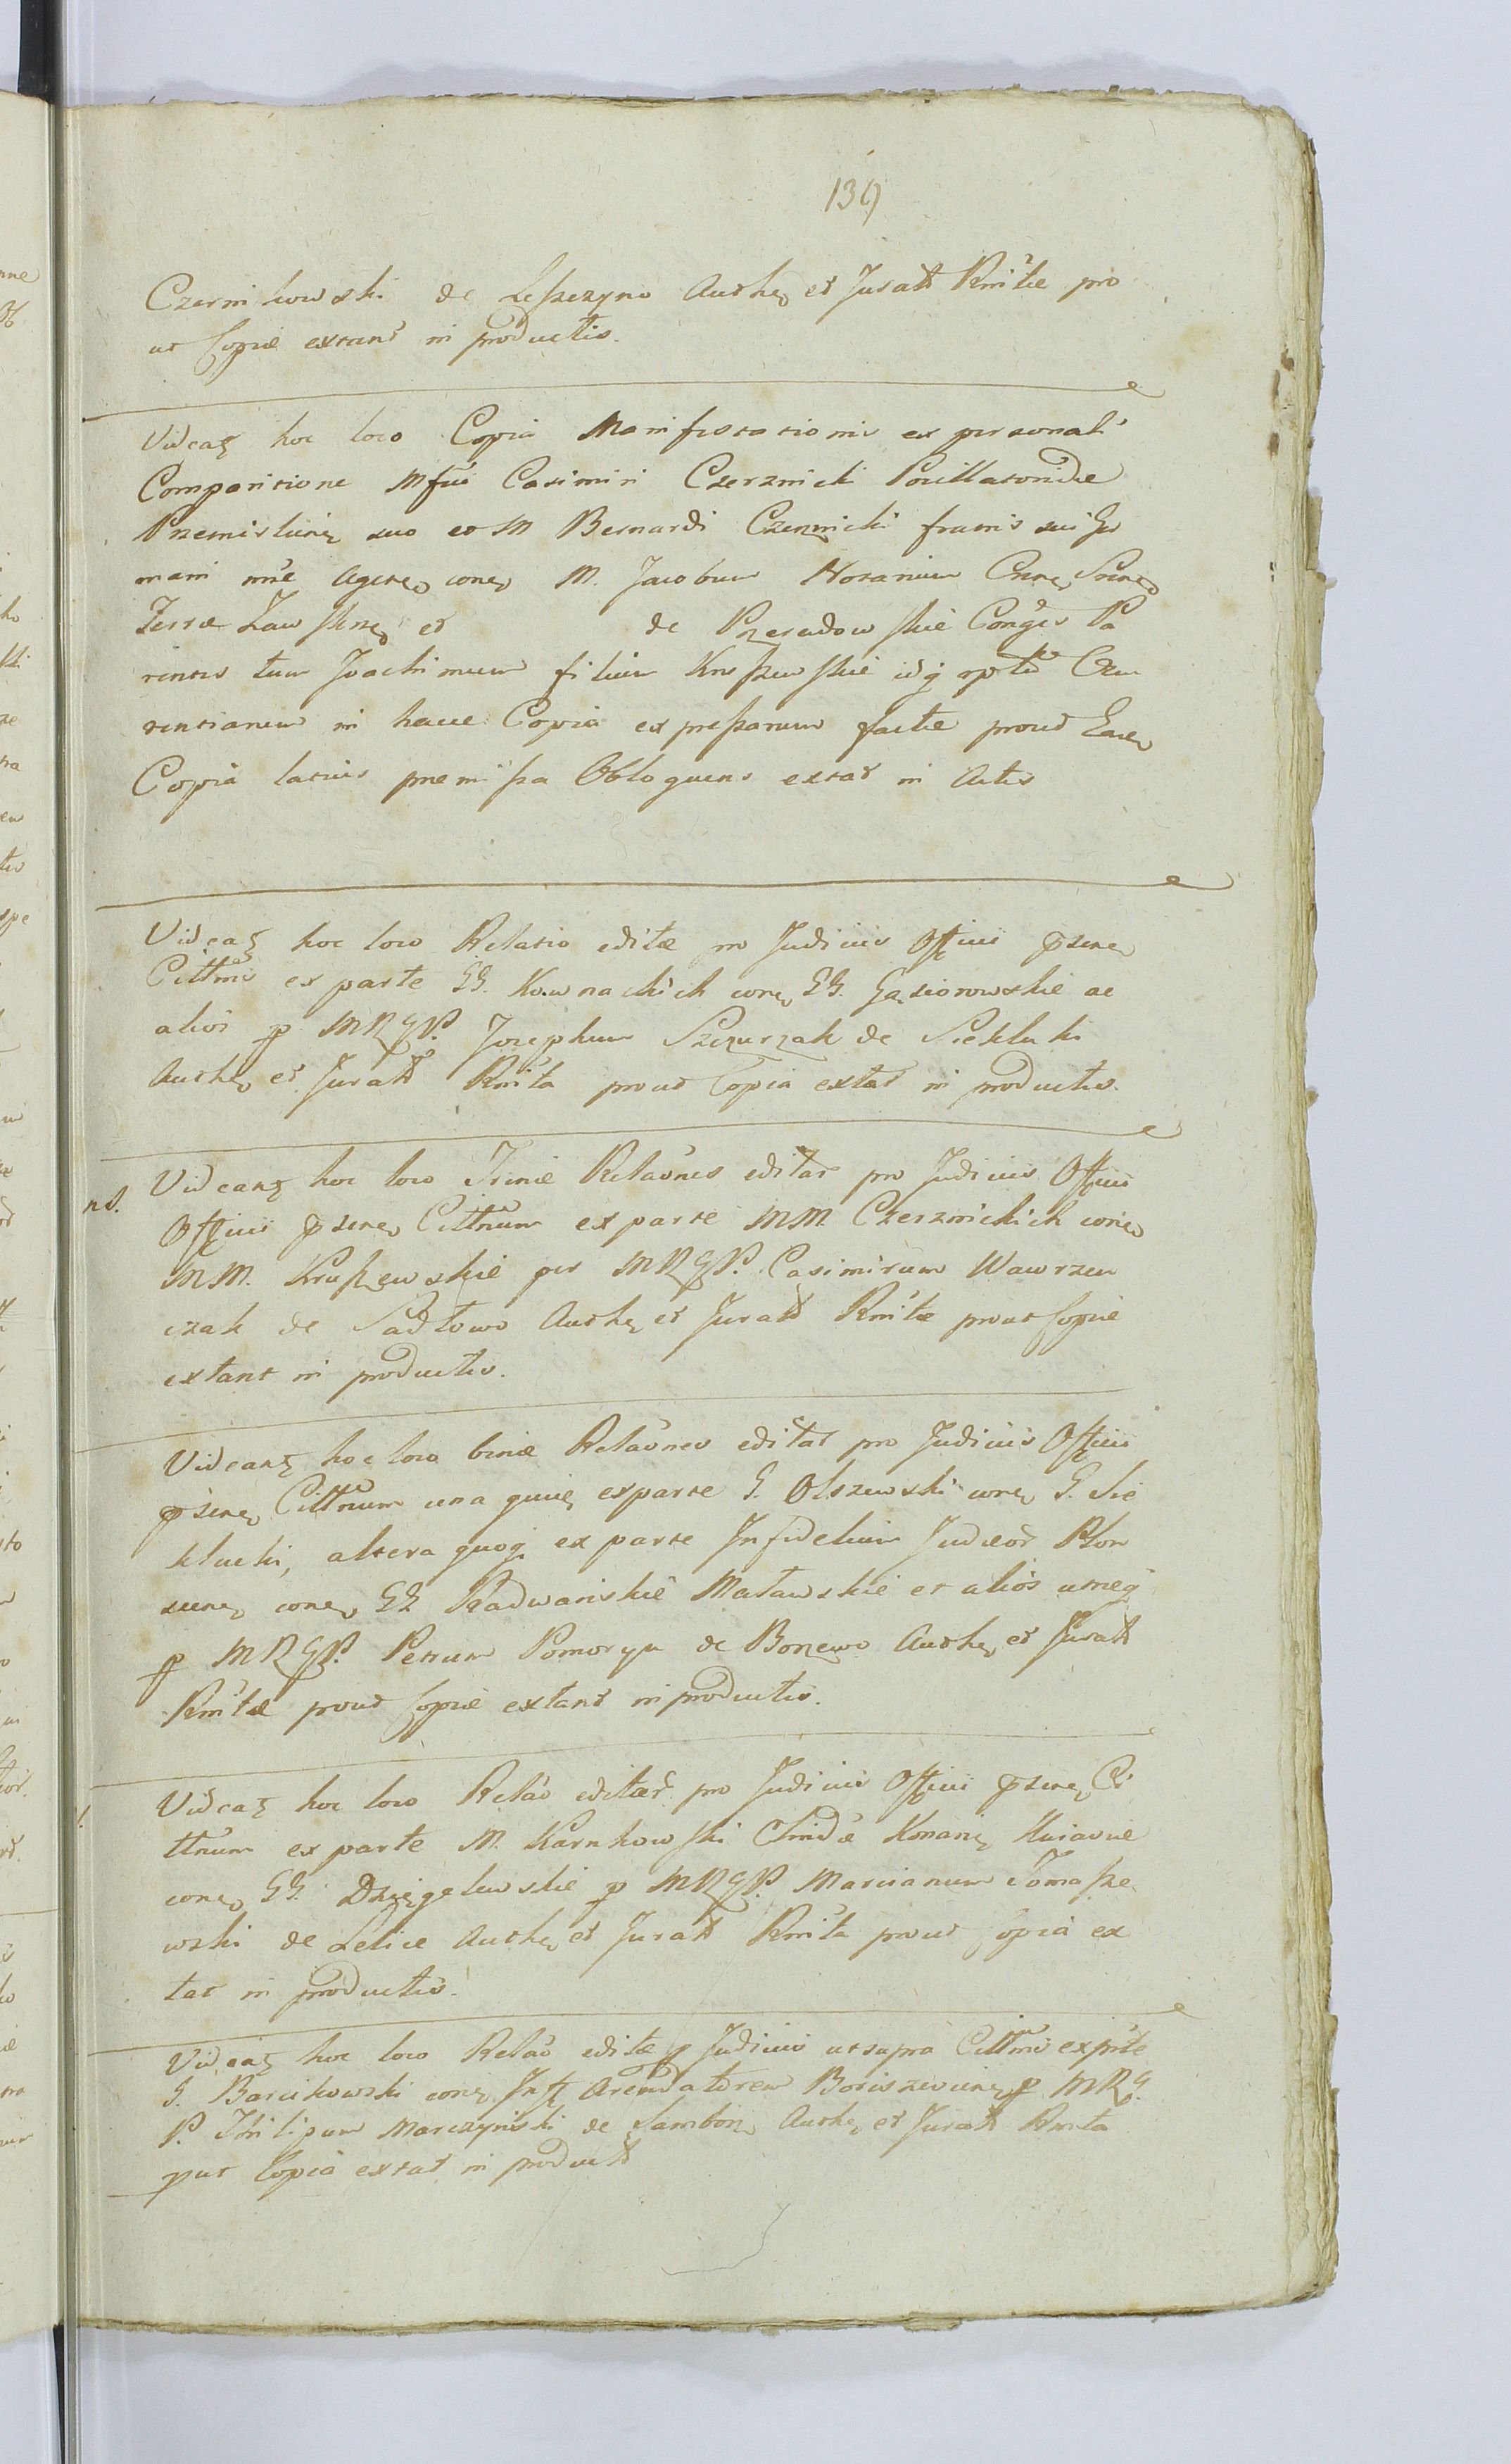 139
Czernikowski de Leszczyno Authe et Juratt Rnitae pro
ut Copiae extant in productis.
Videaz hoc loco Copia Manifestationis ex personali
Comparitione Mfici Casimiri Czerznicki Pocillatoridae
Przemisliene suo et M Bernardi Czerznicki fratris sui Ger
mani nne agene cone M. Jacobum Notarium
Terrae Zaw skrze et de Przeradowskie Conges Pa
rentes tum Joachimum filium Kruszewskie idq
rentianum in hacce Copia expressarum factae prout Eade
Copia latius praemissa Obloquens extat in Actis
Videaz hoc loco Relatio editae pro Judiciis Officii psene
Cittnis ex parte GG. Kownackich cone GG. Gąsiorowskie ac
alios p MRGP. Josephum Szczurzak de Siekluki
Authe et Juratt Rnita prout Copia extat in productis.
nd.
Videanz hoc loco Trinae Relaones editar pro Judiciis Officii
Officii psene Cittnum ex parte MM. Czerznickich cone
MM. Kruszewskie per MRGP. Casimirum Wawrzen
czak de Sadłowo Authe et Juratt Rnitae prout Copiae
extant in productis.
Videanz hoc loco binae Relaones editar pro Judiciis Officii
psene Cittnum una quie ex parte G. Olszewski cone G. Sie
klucki, altera quoq ex parte Infidelium Judaeor Plon
scene cone GG Radwanskie Małowskie et alios utrieq
p MRGP. Petrum Pomorzyn de Borzewo Authe et Juratt
Rnitae prout Copiae extant in productis.
Videaz hoc loco Relao editar pro Judiciis Officii psene Ci
ttnum ex parte M. Karnkowski Konarie Kuiaviae
cone GG. Drzęgelewskie p MRGP. Marcianum Tomasze
wski de Lelice Authe et Juratt Rnita prout Copia ex
tat in productis.
Videaz hoc loco Relao editae p Judiciis ut supra Cittnis ex prte
G. Barcikowski cone Inf Arendatorem Boriszeviene p MRG.
P. Philipum Marczynski de Samborz Authe et Juratt Rnita
put Copia extat in productt